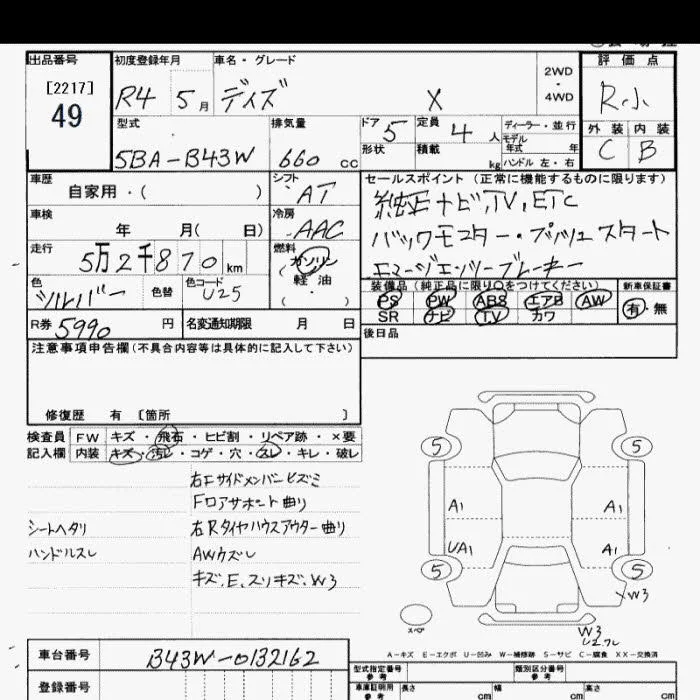 出品番号 初度登録年月 車名・グレード 評価点
[2217]
49
R4 5月 デイズ X 2WD・4WD R小
型式 排気量 ドア 5 定員 4人 ディーラー・並行 外装 内装
モデル年式 年
5BA-B43W 660cc 形状 積載 kg ハンドル 左・右 C B
車歴 シフト セールスポイント(正常に機能するものに限ります)
自家用・( ) AT 純正ナビ,TV,ETC
車検 冷房
年 月( 日) AAC バックモニター・プッシュスタート
走行 燃料
5万2千870km ガソリン エマージェンシーブレーキー
軽油
( ・ )
色 色替 色コード 装備品(純正品に限り○をつけてください) 新車保証書
シルバー U25 PS PW ABS エアB AW 有・無
R券 5990円 名変通知期限 月 日 SR ナビ TV カワ
注意事項申告欄(不具合内容等は具体的に記入して下さい) 後日品
修復歴 有 〔箇所 〕
検査員 FW キズ・飛石・ヒビ割・リペア跡・×要
記入欄 内装 キズ・汚レ・コゲ・穴・スレ・キレ・破レ
右Fサイドメンバーヒズミ
Fロアサポート曲り
シートヘタリ 右Rタイヤハウスアウター曲り
ハンドルスレ AWクズレ
キズ.E.スリキズ.W3
5 5
A1 A1
UA1 A1
5 5
×W3
スペア
W3
A-キズ E-エクボ U-凹み W-補修跡 S-サビ C-腐食 XX-交換済
車台番号 B43W-0132162
型式指定番号 参考 類別区分番号 参考
登録番号 車庫証明用 参考 長さ cm 幅 cm 高さ cm